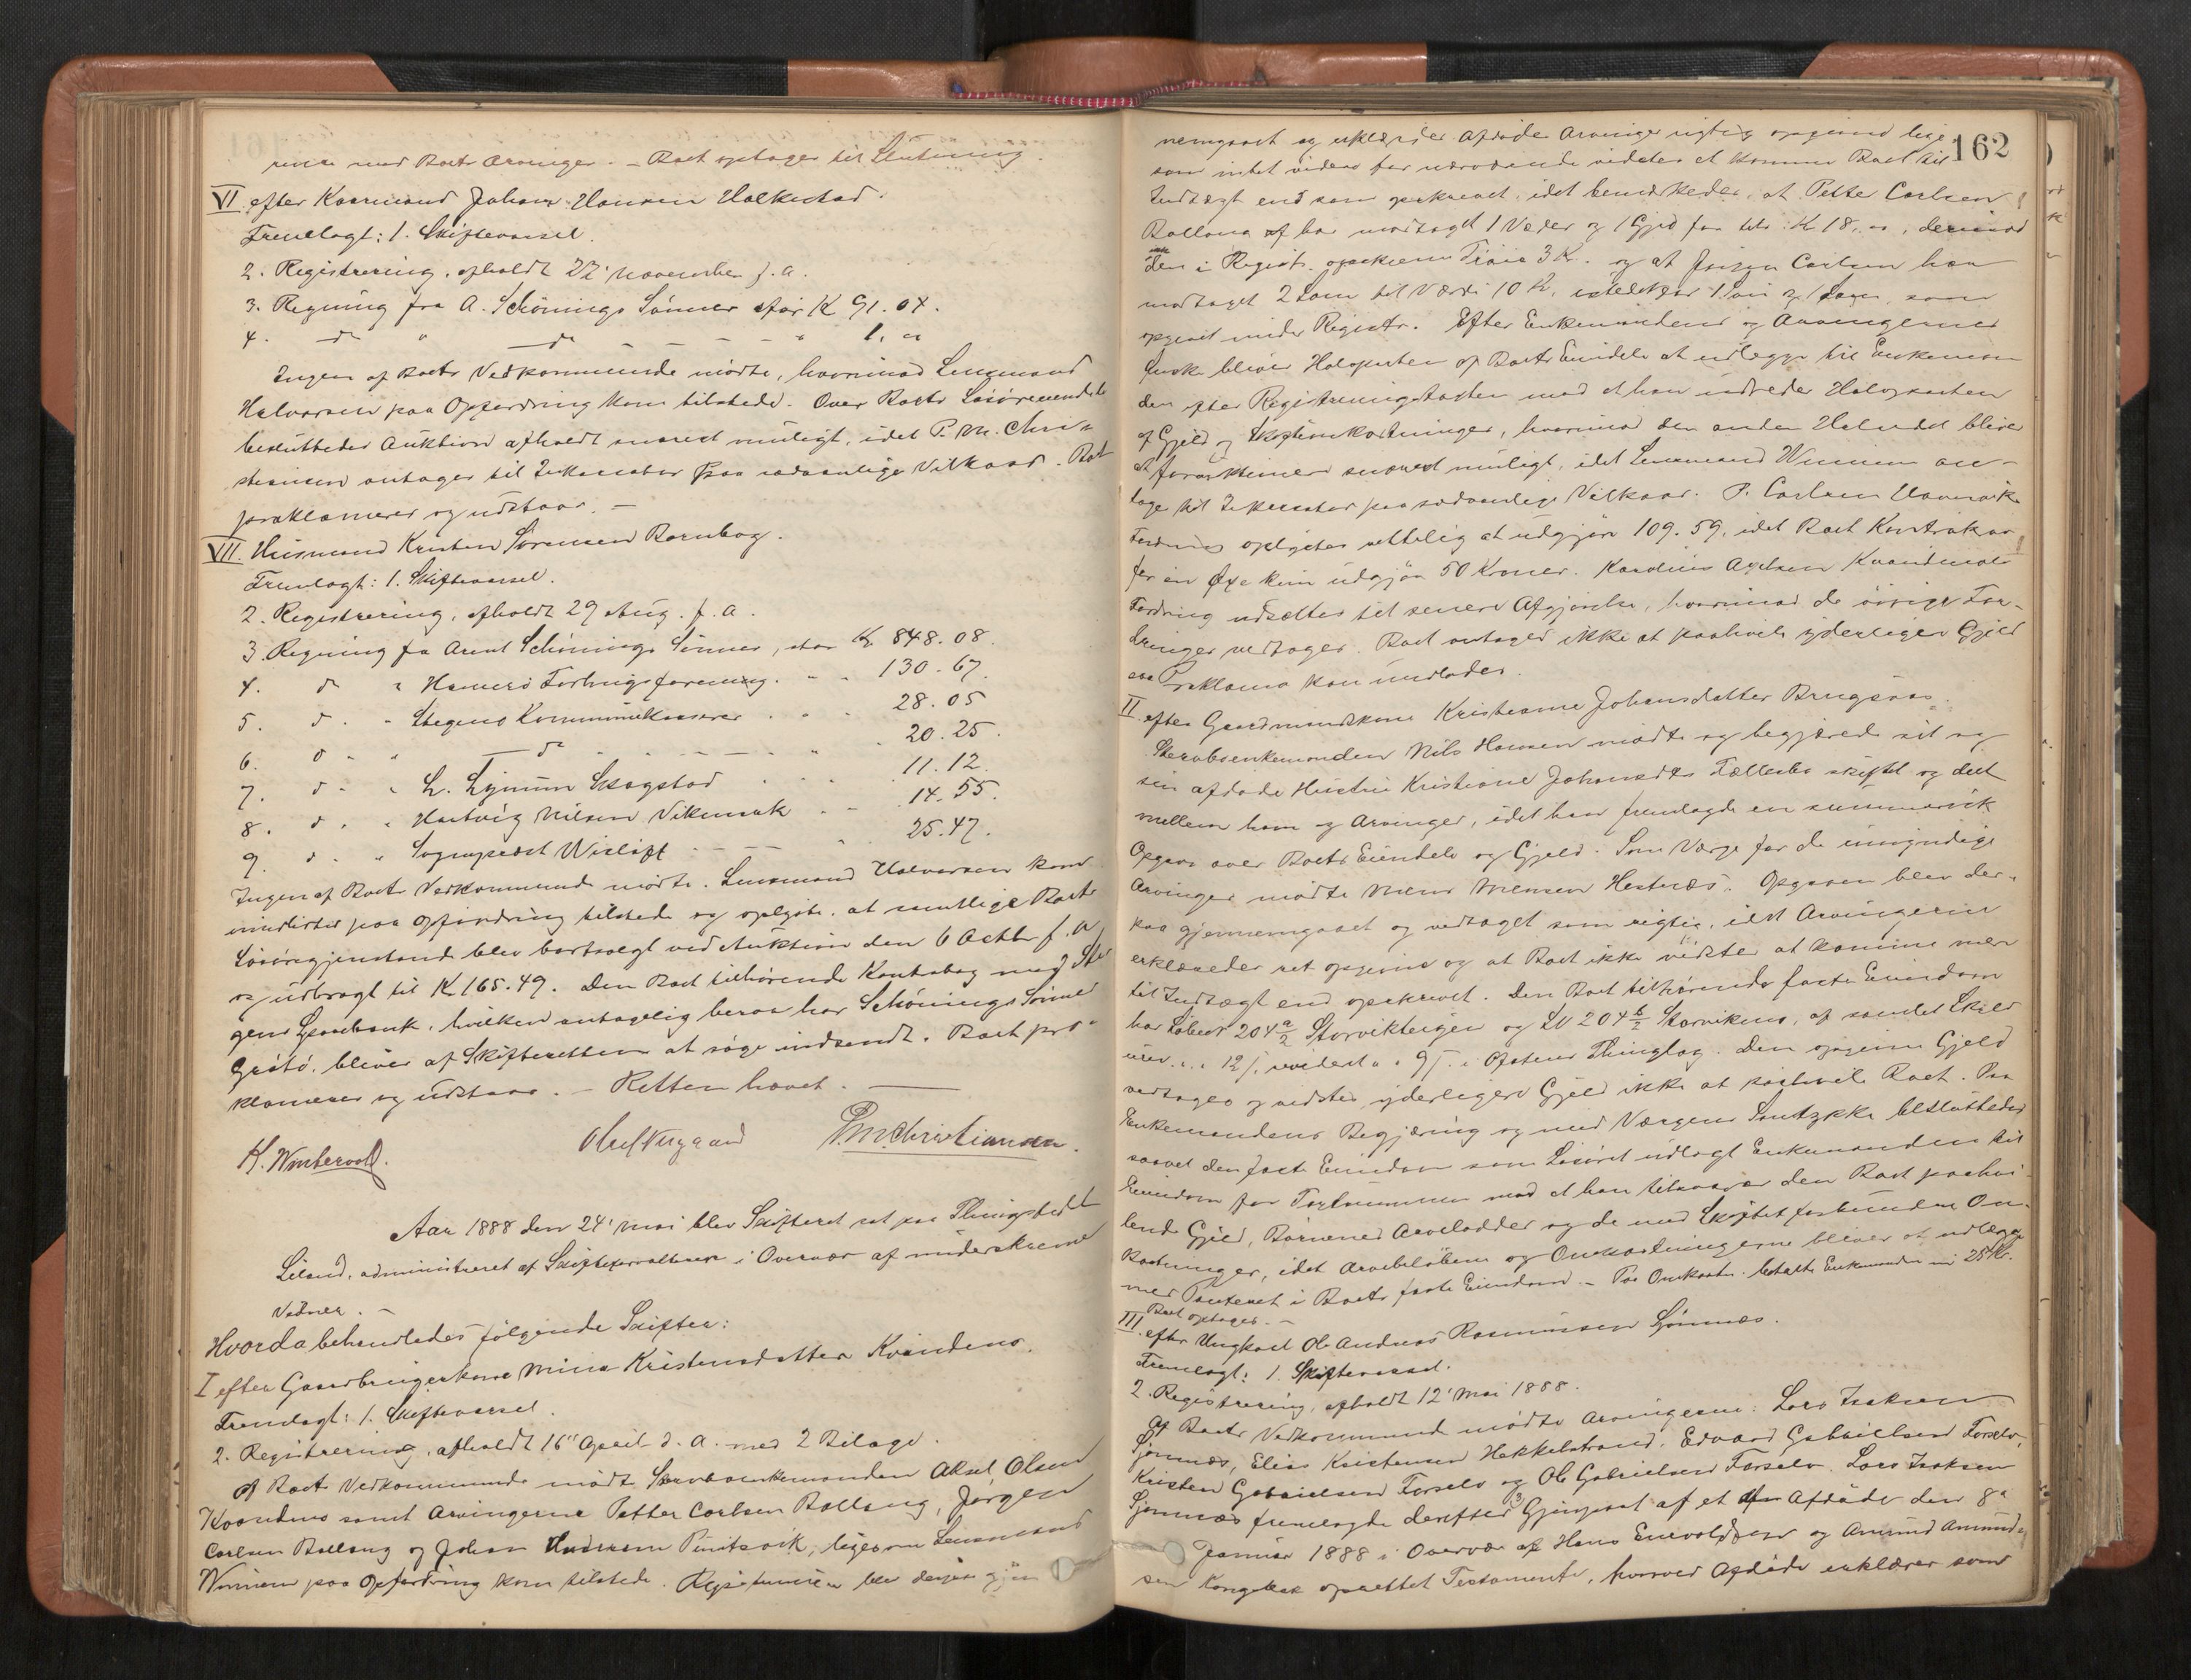 med Boets Arvinger. – Boet optages til Slutning.
VI efter Kaarmand Johan Hansen Halkestad.
Fremlagt: 1. Skiftevarsel.
2. Registrering, afholdt 22' November f. a.
3. Regning fra A. Schønings Sønner stor K 91.04.
4. do " do – – – – " 1. "
Ingen af Boets Vedkommende mødte, hvorimod Lensmand
Halvorsen paa Opfordring kom tilstede. Over Boets Løsøreeiendele
besluttedes Auktion afholdt snarest muligt, idet P. M. Chri-
stiansen antages til Inkassator paa sædvanlige Vilkaar. Boet
proklameres og udstaar. –
VII. Husmand Kristen Sørensen Bornbog.
Fremlagt: 1. Skiftevarsel.
2. Registrering, afholdt 29 Aug. f. a.
3. Regning fra Arent Schønings Sønner, stor K 848.08.
4. do " Hamerø Forbrugsforening " 130.67.
5. do " Stegens Kommunekasserer " 28.05
6. do " do 20.25.
7. do " L. Lynum Skogstad 11.12.
8. do " Hartvig Nilsen Vikmark 14.55.
9. do " Sogneprest Wisløff 25.47.
Ingen af Boets Vedkommende mødte. Lensmand Halvorsen kom
imidlertid paa Opfordring tilstede og oplyste, at samtlige Boets
Løsøregjenstande blev bortsolgt ved Auktion den 6 Octbr f. a.
og udbragt til K 165.49. Den Boet tilhørende Kontrabog med Ste-
gens Sparebank, hvilken antagelig beror hos Schønings Sønner
Grøtø, bliver af Skifteretten at søge indsendt. Boet pro-
klameres og udstaar. – Retten hævet. –
K. Wintervold. Olaf Nygaard P.M. Christiansen.
Aar 1888 den 24' Mai blev Skifteret sat paa Thingstedet
Liland, administreret af Skifteforvalteren i Overvær af underskrevne
Vidner. –
Hvorda behandledes følgende Skifter:
I efter Gaardbrugerkone Mina Kristensdatter Kvandens.
Fremlagt: 1. Skiftevarsel.
2. Registrering, afholdt 16" April d. A. med 2 Bilage.
Af Boets Vedkommende mødte Stervboenkemanden Aksel Olsen
Kvandens samt Arvingerne Petter Carlsen Ballang, Jørgen
Carlsen Ballang og Johan Andersen, ligesom Lensmand
paa Opfordring kom tilstede. Registreringen blev derpaa gjen-
162
nemgaaet og erklæredes Afdødes Arvinger rigtig opgivne lige
som intet videre for nærværende vidstes at komme Boet til
Indtægt end som opskrevet, idet bemærkedes, at Petter Carlsen
Ballang har modtaget 1 Væder og 1 Gjed for tils. K 18."", derimod
ikke den i Registr. opskrevne Trøie 3 K. og at Jørgen Carlsen har
modtaget 2 Lam til Værdi 10 K, istedetfor 1 Soui og 1 Lam, som
opgivet under Registr. Efter Enkemandens og Arvingernes
Ønske bliver Halvparten af Boets Eiendele at udlægge til Enkeman-
den efter Registreringstaxten mod at han udreder Halvparten
af Gjeld og Skifteomkostninger, hvorimod den anden Halvdel bliver
at forauktionere snarest muligt, idet Lensmand an-
toges til Inkassator paa sædvanlige Vilkaar. P. Carlsen
Fordring oplystes rettelig at udgjøre 109.59, idet
for en Oxe kun udgjør 50 Kroner. Karolius Axelsen Kvandens
Fordring udsættes til senere Afgjørelse, hvorimod de øvrige For-
dringer vedtages. Boet antages ikke at paahvile yderligere Gjeld
saa Proklama kan undlades.
II efter Gaardmandskone Kristiane Johansdatter
Stervboenkemanden Nils Hansen mødte og begjærede sit og
sin afdøde Hustru Kristiane Johansdtrs Fællesbo skiftet og delt
mellem ham og Arvinger, idet han fremlagde en summarisk
Opgave over Boets Eiendele og Gjeld. Som Værge for de umyndige
Arvinger mødte Mons Monsen Hestnæs. Opgaven blev der-
paa gjennemgaaet og vedtaget som rigtig, idet Arvingerne
erklæredes ret opgivne og at Boet ikke vidstes at komme mere
til Indtægt end opskrevet. Den Boet tilhørende faste Eiendom
har Løbenr 204 a/2 Storvikteigen og LN 204 b/2 Storviknes, af samlet Skyld
urev. " " 12 f, revideret " " 9 f. i Ofotens Thinglag. Den opgivne Gjeld
vedtages og vidstes yderligere Gjeld ikke at paahvile Boet. Paa
Enkemandens Begjæring og med Værgens Samtykke besluttedes
saavel den faste Eiendom som Løsøret udlagt Enkemanden til
Eiendom for Taxtsummen mod at han tilsvarer den Boet paahvi-
lende Gjeld, Børnenes Arvelodder og de med Skiftet forbundne Om-
kostninger, idet Arvebeløbene og Omkostningerne bliver at udlægge
med Panteret i Boets faste Eiendom. – Paa Omkostn. betalte Enkemanden 25 Kr.
Boet optages. –
III efter Ungkarl Ole Andreas Rasmussen Sjømnæs.
Fremlagt: 1. Skiftevarsel.
2. Registrering, afholdt 12' Mai 1888.
Af Boets Vedkommende mødte Arvingerne: Lars Isaksen
Sjømnæs, Elias Kristensen Hekkelstrand, Edvard Gabrielsen Forselv,
Kristen Gabrielsen Forselv og Ole Gabrielsen Forselv. Lars Isaksen
Sjømnæs fremlagde derefter 3 Gjenpart af et af Afdøde den 8de
Januar 1888 i Overvær af Hans Enevoldsen og Amund Amund-
sen Kongsbak oprettet Testamente, hvorved Afdøde erklærer som